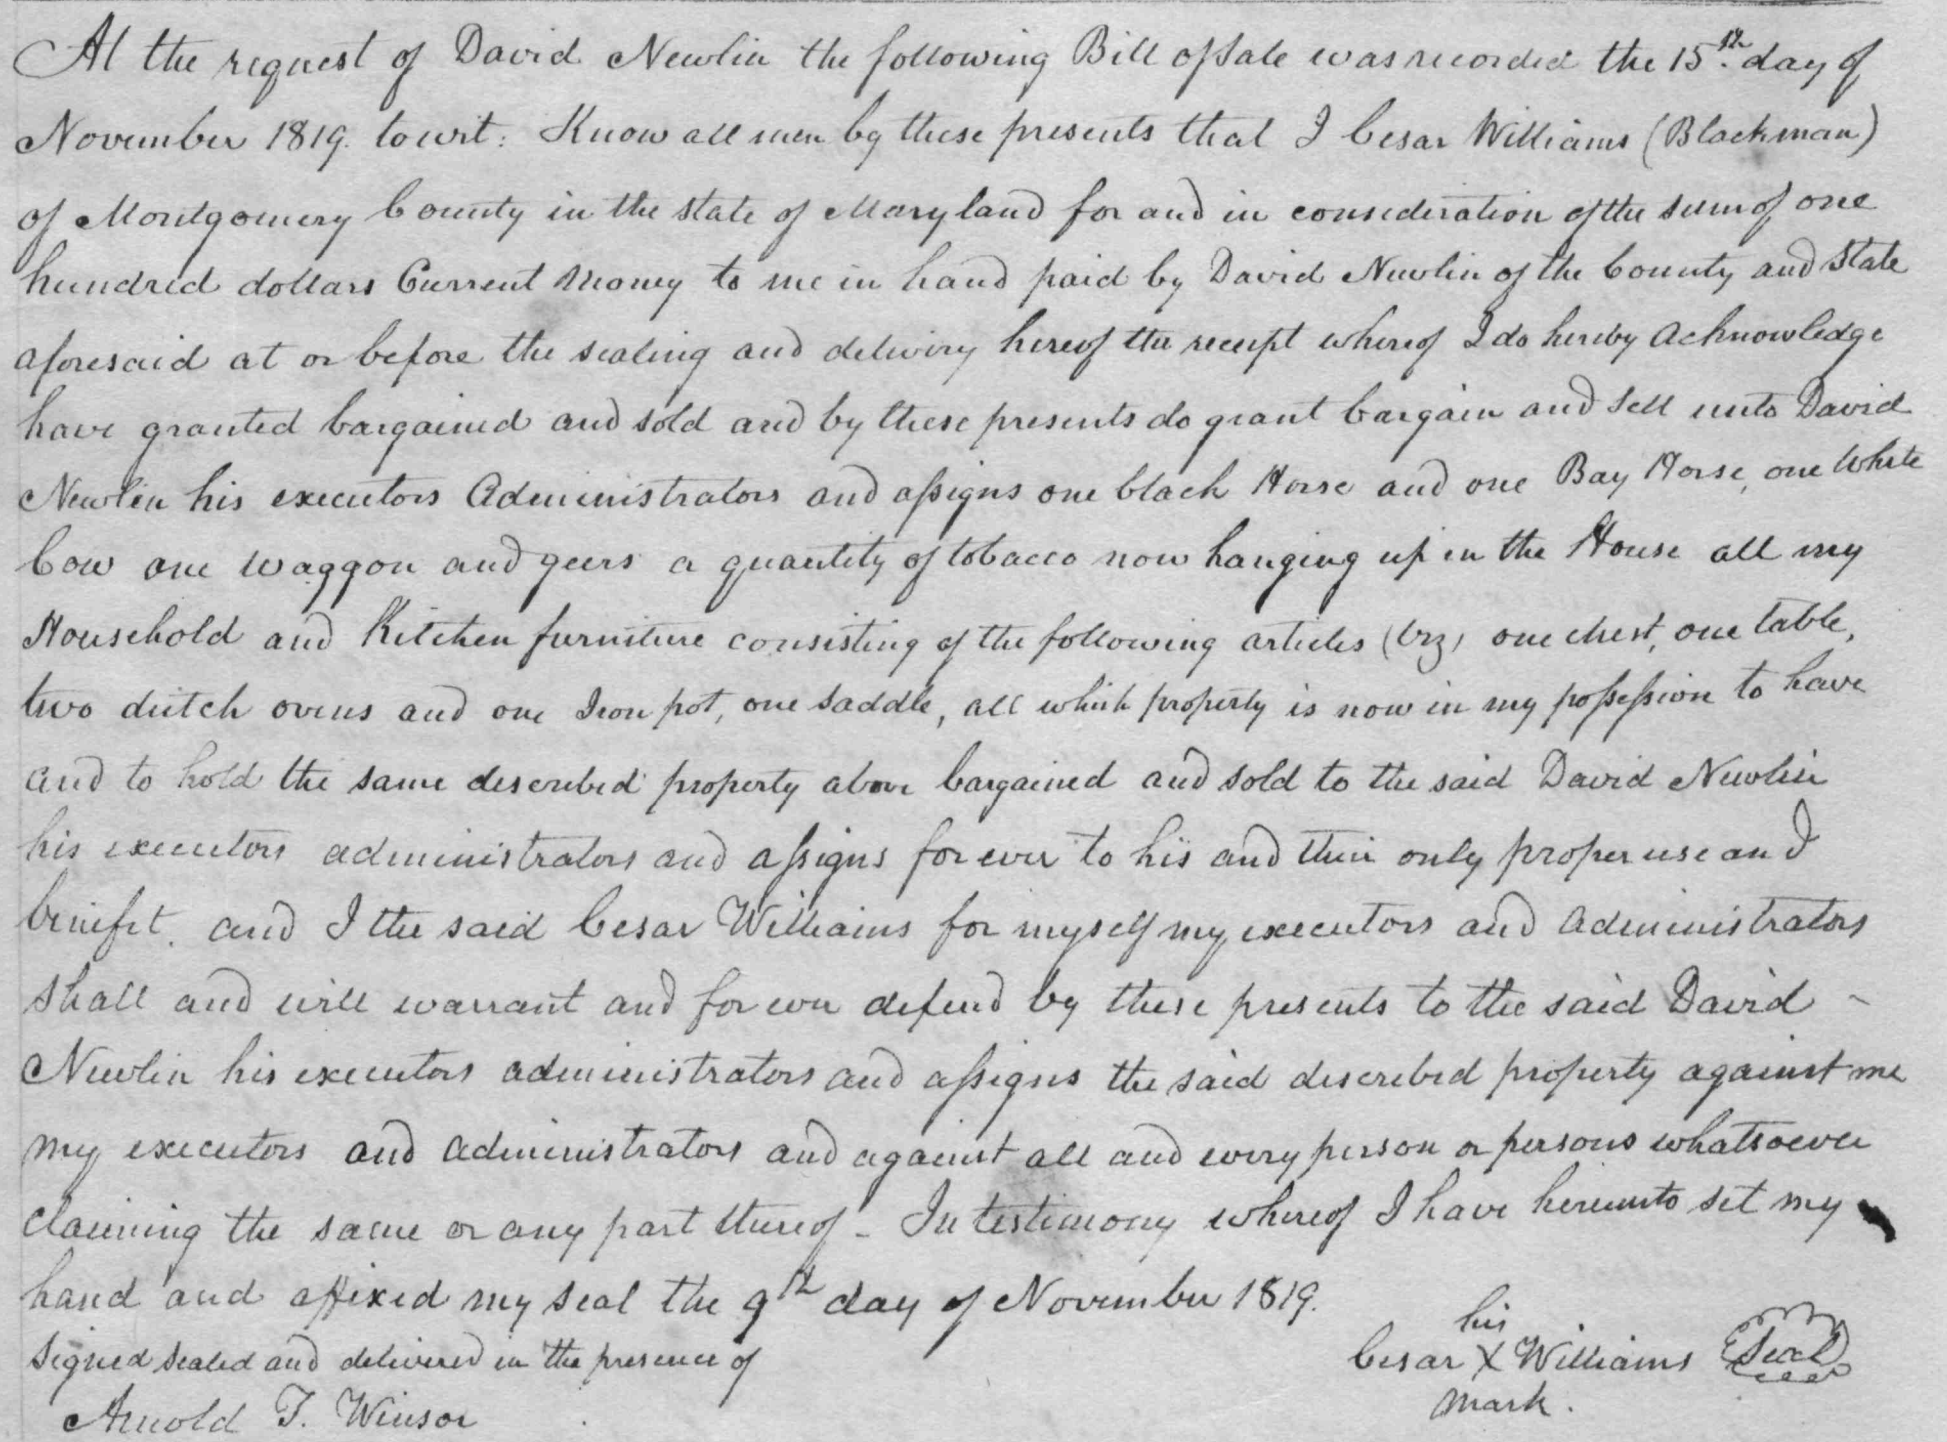 At the request of David Newlin the following Bill of Sale was recorded the 15th. day of
November 1819. to wit: Know all men by these presents that I Cesar Williams (Blackman)
of Montgomery County in the state of Maryland for and in consideration of the sum of one
hundred dollars Current Money to me in hand paid by David Newlin of the County and State
aforesaid at or before the sealing and delivery hereof the receipt whereof I do hereby acknowledge
have granted bargained and sold and by these presents do grant bargain and sell unto David
Newlin his executors Administrators and assigns one black Horse and one Bay Horse, one White
Cow one waggon and geers a quantity of tobacco now hanging up in the House all my
Household and Kitchen furniture consisting of the following articles (viz) one chest, one table,
two dutch ovens and one Iron pot, one saddle, all which property is now in my possession to have
and to hold the same described property above bargained and sold to the said David Newlin
his executors administrators and assigns for ever to his and their only proper use and
benefit. and I the said Cesar Williams for myself my executors and administrators
shall and will warrant and for ever defend by these presents to the said David -
Newlin his executors administrators and assigns the said described property against me
my executors and administrators and against all and every person or persons whatsoever
claiming the same or any part thereof - In testimony whereof I have hereunto set my
hand and affixed my seal the 9th day of November 1819.
his
signed sealed and delivered in the presence of Cesar X Williams Seal
mark.
Arnold T. Winsor